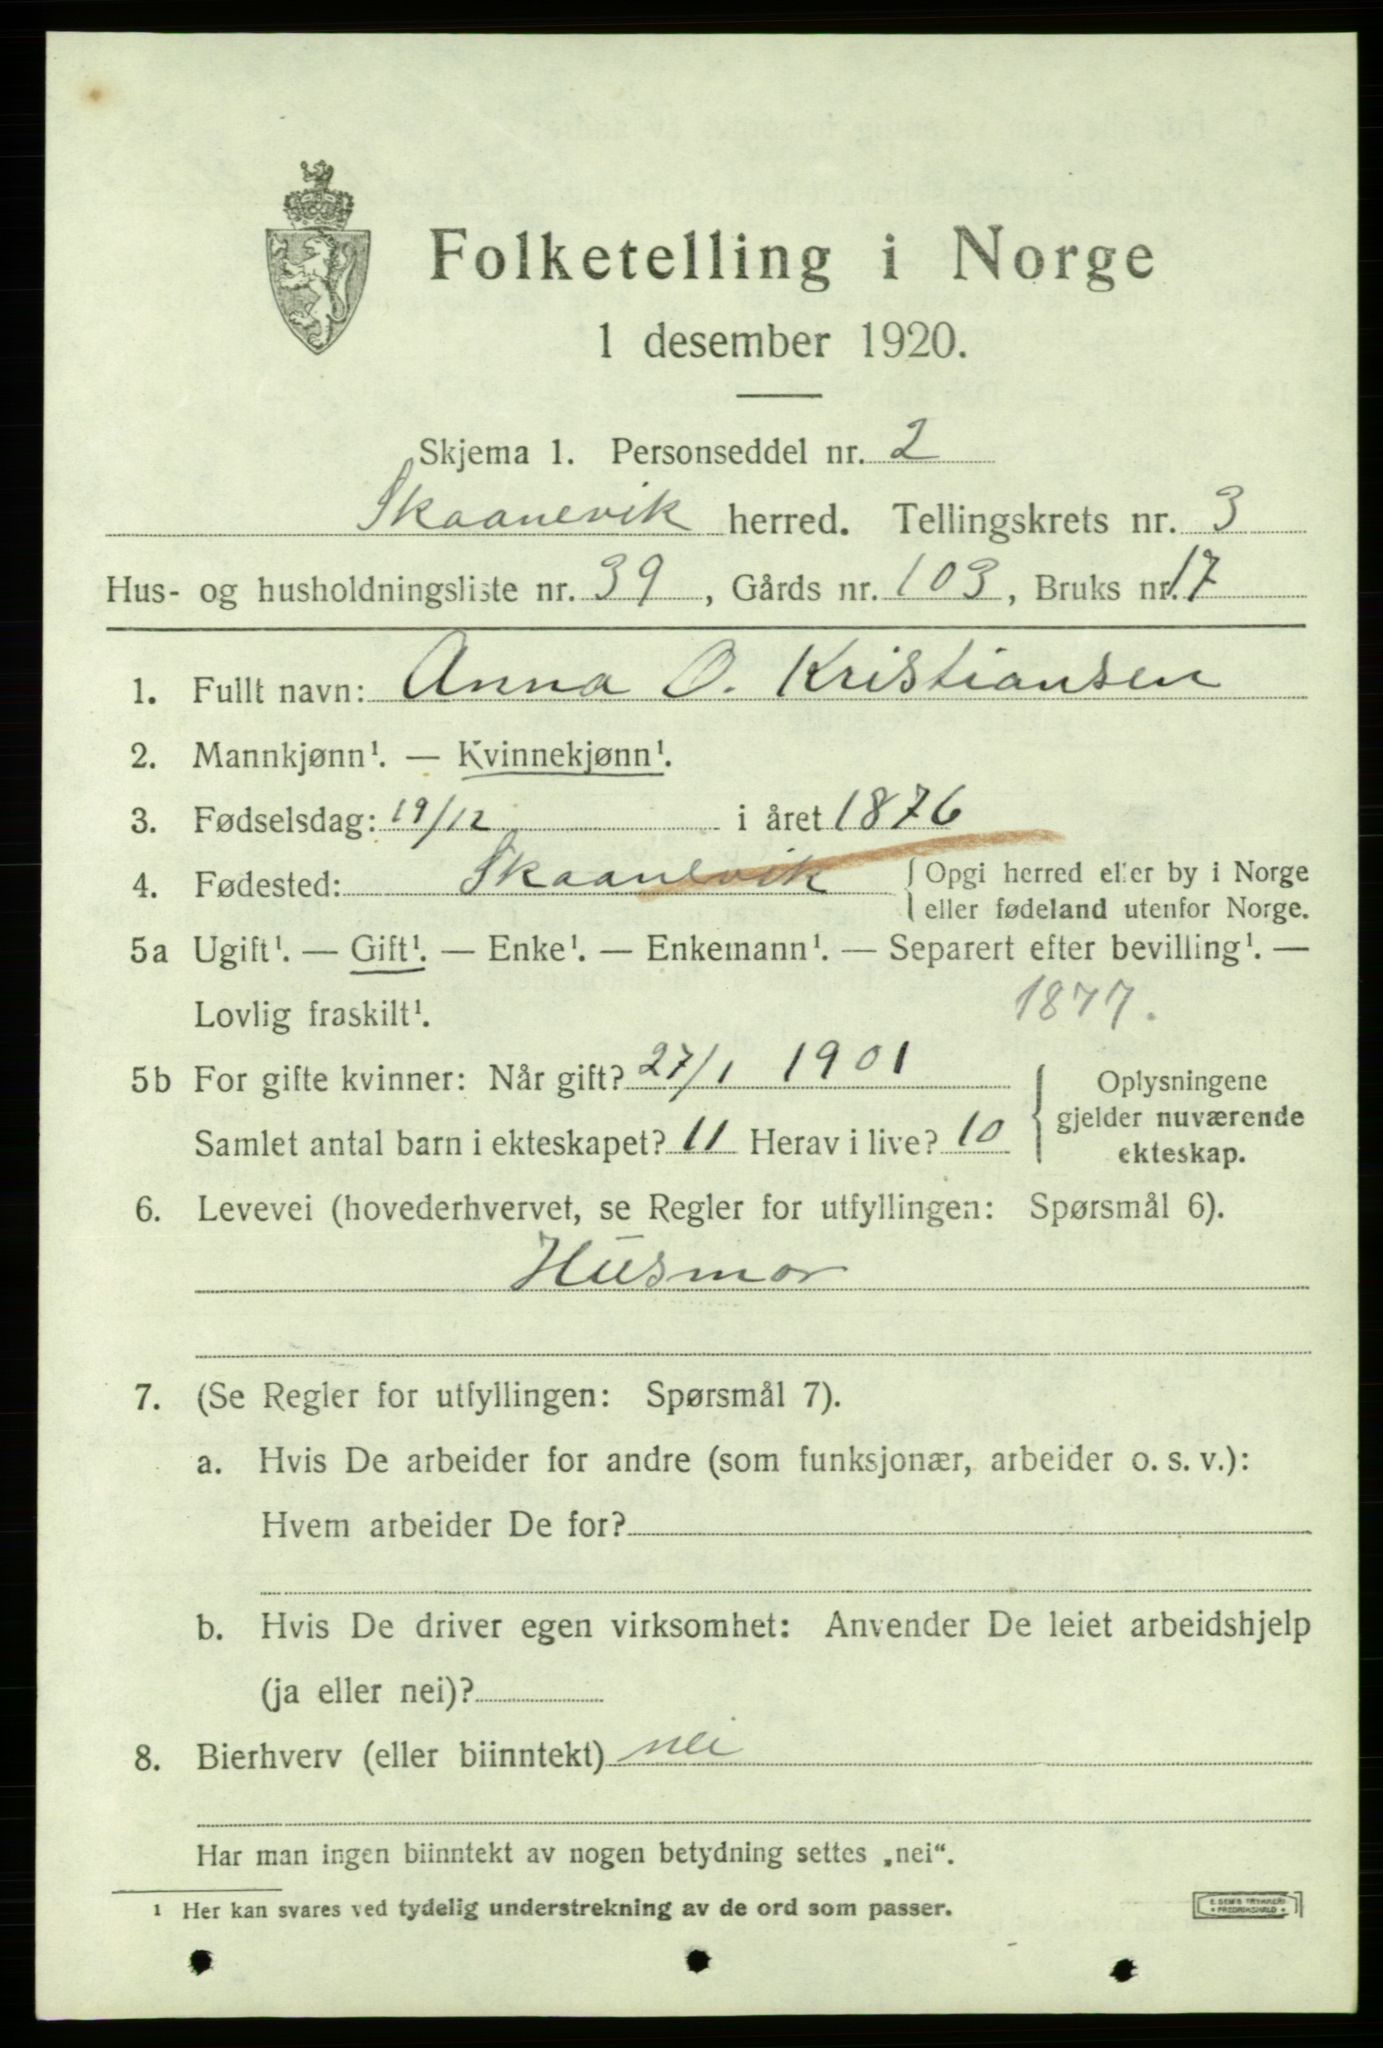 Folketelling i Norge
1 desember 1920.
Skjema 1. Personseddel nr. 2
Skaanevik herred. Tellingskrets nr. 3
Hus- og husholdningsliste nr. 39, Gårds nr. 103, Bruks nr. 17
1. Fullt navn: Anna O. Kristiansen
2. Mannkjønn¹. — Kvinnekjønn¹.
3. Fødselsdag: 19/12 i året 1876
4. Fødested: Skaanevik { Opgi herred eller by i Norge
eller fødeland utenfor Norge.
5a Ugift¹. — Gift¹. — Enke¹. — Enkemann¹. — Separert efter bevilling¹. —
Lovlig fraskilt¹. 1877.
5b For gifte kvinner: Når gift? 27/1 1901 Oplysningene
gjelder nuværende
Samlet antal barn i ekteskapet? 11 Herav i live? 10 ekteskap.
6. Levevei (hovederhvervet, se Regler for utfyllingen: Spørsmål 6).
Husmor
7. (Se Regler for utfyllingen: Spørsmål 7).
a. Hvis De arbeider for andre (som funksjonær, arbeider o. s. v.):
Hvem arbeider De for?
b. Hvis De driver egen virksomhet: Anvender De leiet arbeidshjelp
(ja eller nei)?
8. Bierhverv (eller biinntekt) nei
Har man ingen biinntekt av nogen betydning settes „nei“.
1 Her kan svares ved tydelig understrekning av de ord som passer.
E. SEM'S TRYKKERI
FREDRIKSHALD